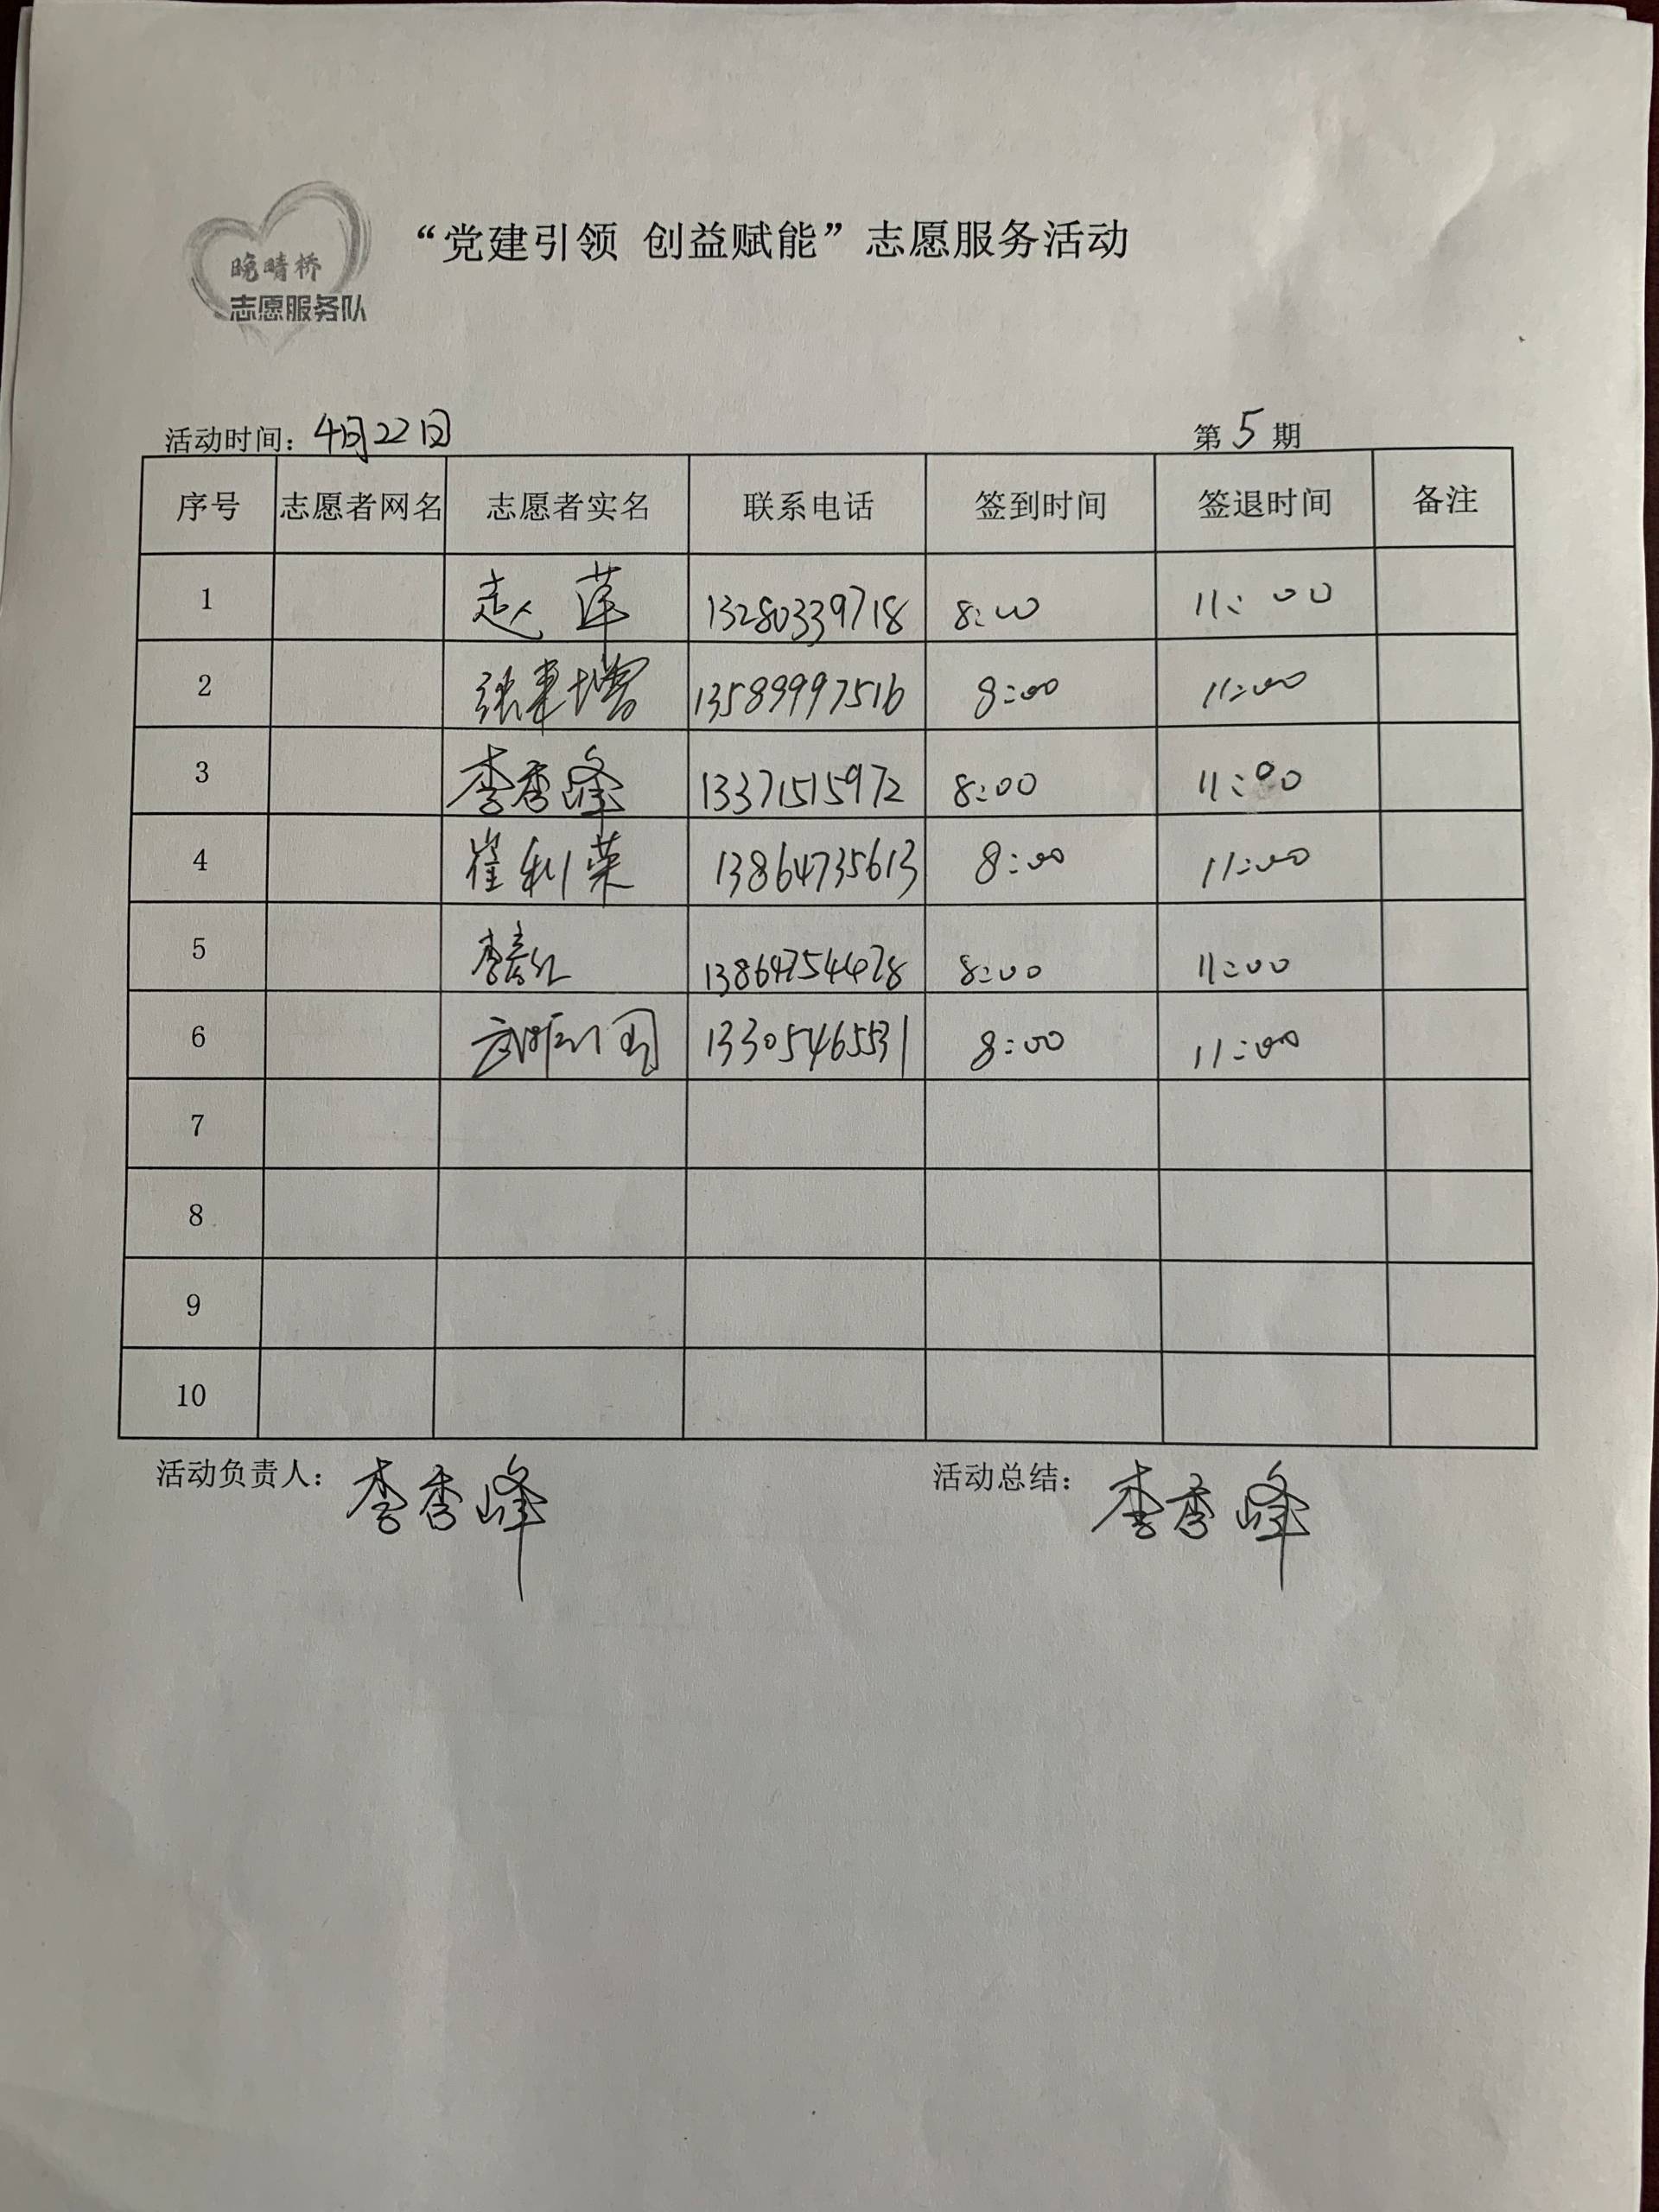 晚晴桥
志愿服务队
“党建引领 创益赋能”志愿服务活动
活动时间：4月22日 第5期
序号 志愿者网名 志愿者实名 联系电话 签到时间 签退时间 备注
1 赵莲 13280339718 8:00 11:00
2 张建增 13589997516 8:00 11:00
3 李秀峰 13371515972 8:00 11:00
4 崔利荣 13864735613 8:00 11:00
5 李 红 13864754478 8:00 11:00
6 13305465531 8:00 11:00
7
8
9
10
活动负责人：李秀峰 活动总结：李秀峰